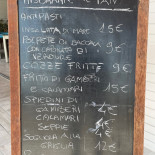 ANTIPASTI
INSALATA DI MARE 15€
POLPETTE DI BACCALÀ
CON CAPONATA DI
VERDURE 9€
COZZE FRITTE 9€
FRITTO DI GAMBERI
E CALAMARI 15€
SPIEDINI DI
GAMBERI
CALAMARI
SEPPIE
GRIGLIA 12€